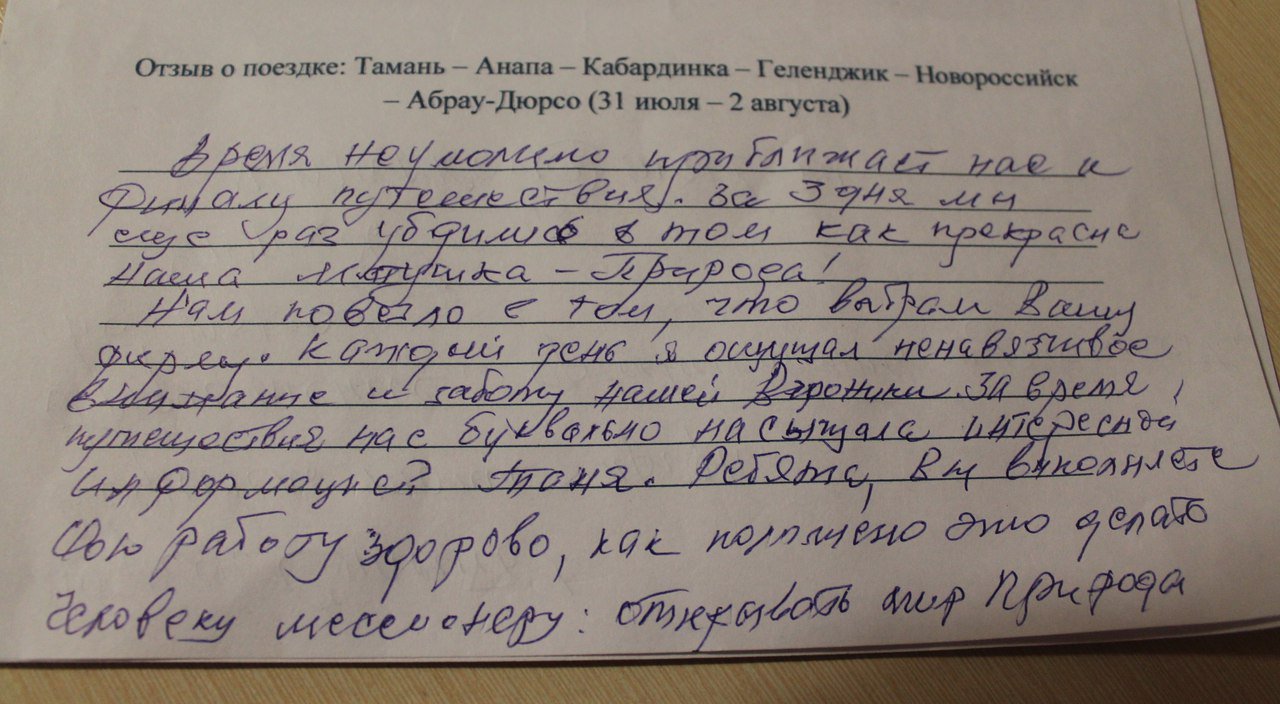 Отзыв о поездке: Тамань – Анапа – Кабардинка – Геленджик – Новороссийск
– Абрау-Дюрсо (31 июля – 2 августа)
Время неумолимо приближает нас к
финалу путешествия. За 3 дня мы
еще раз убедились в том как прекрасна
наша Матушка – Природа!
Нам повезло с тем, что выбрали Вашу
фирму. Каждый день я ощущал ненавязчивое
внимание и заботу нашей Вероники. За время
путешествия нас буквально насыщала интересной
информацией Таня. Ребята, Вы выполняете
свою работу здорово, как положено это делать
человеку миссионеру: открывать мир Природы